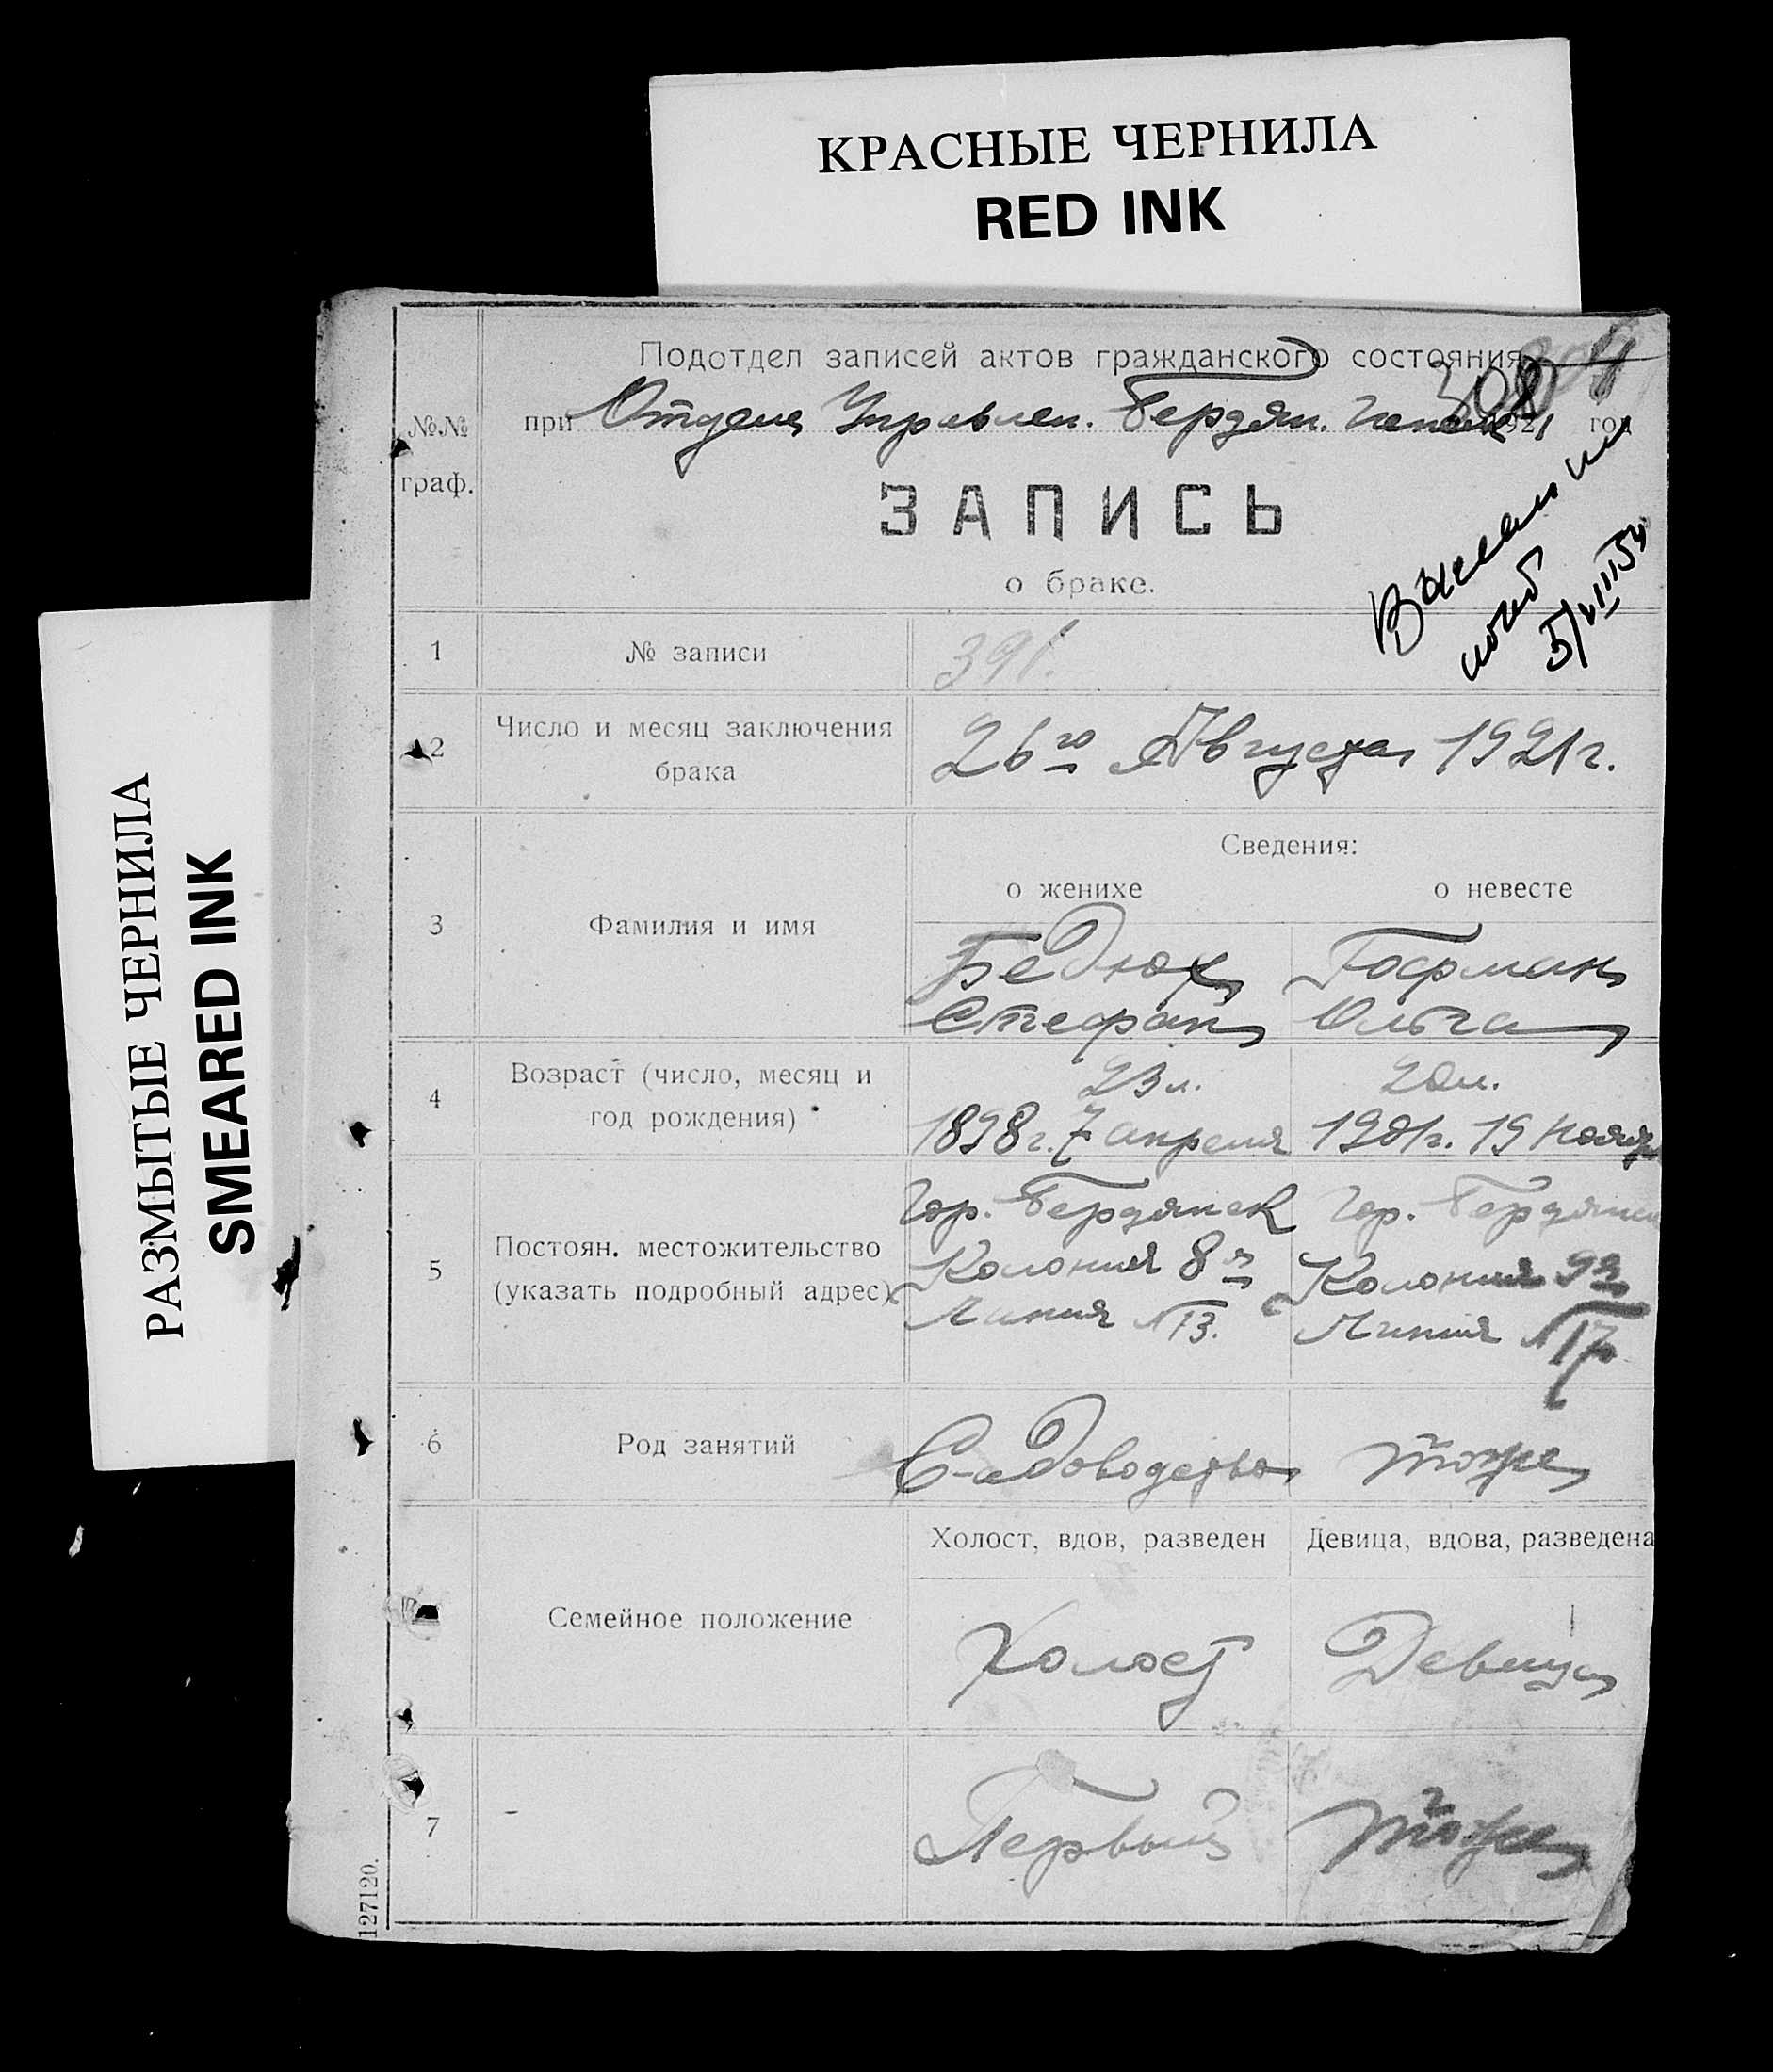 КРАСНЫЕ ЧЕРНИЛА
RED INK
РАЗМЫТЫЕ ЧЕРНИЛА
SMEARED INK
Подотдел записей актов гражданского состояния
при Отделе Управлен. Бердян. 1921 год
№№
граф.
ЗАПИСЬ
о браке.
5/VIII 54
1 № записи 391.
2 Число и месяц заключения
брака
26го Августа 1921 г.
Сведения:
о женихе о невесте
3 Фамилия и имя
Бедюх Гофман
Стефан Ольга
4 Возраст (число, месяц и
год рождения)
23 л. 20 л.
1898 г. 7 апреля 1901 г. 19 Ноября
5 Постоян. местожительство
(указать подробный адрес)
Гор. Бердянск Гор. Бердянск
Колония 8я Колония 9я
Линия № 13. Линия № 17
6 Род занятий
Садоводство тоже
Холост, вдов, разведен Девица, вдова, разведена
Семейное положение
Холост Девица
7 Первый тоже
127120.